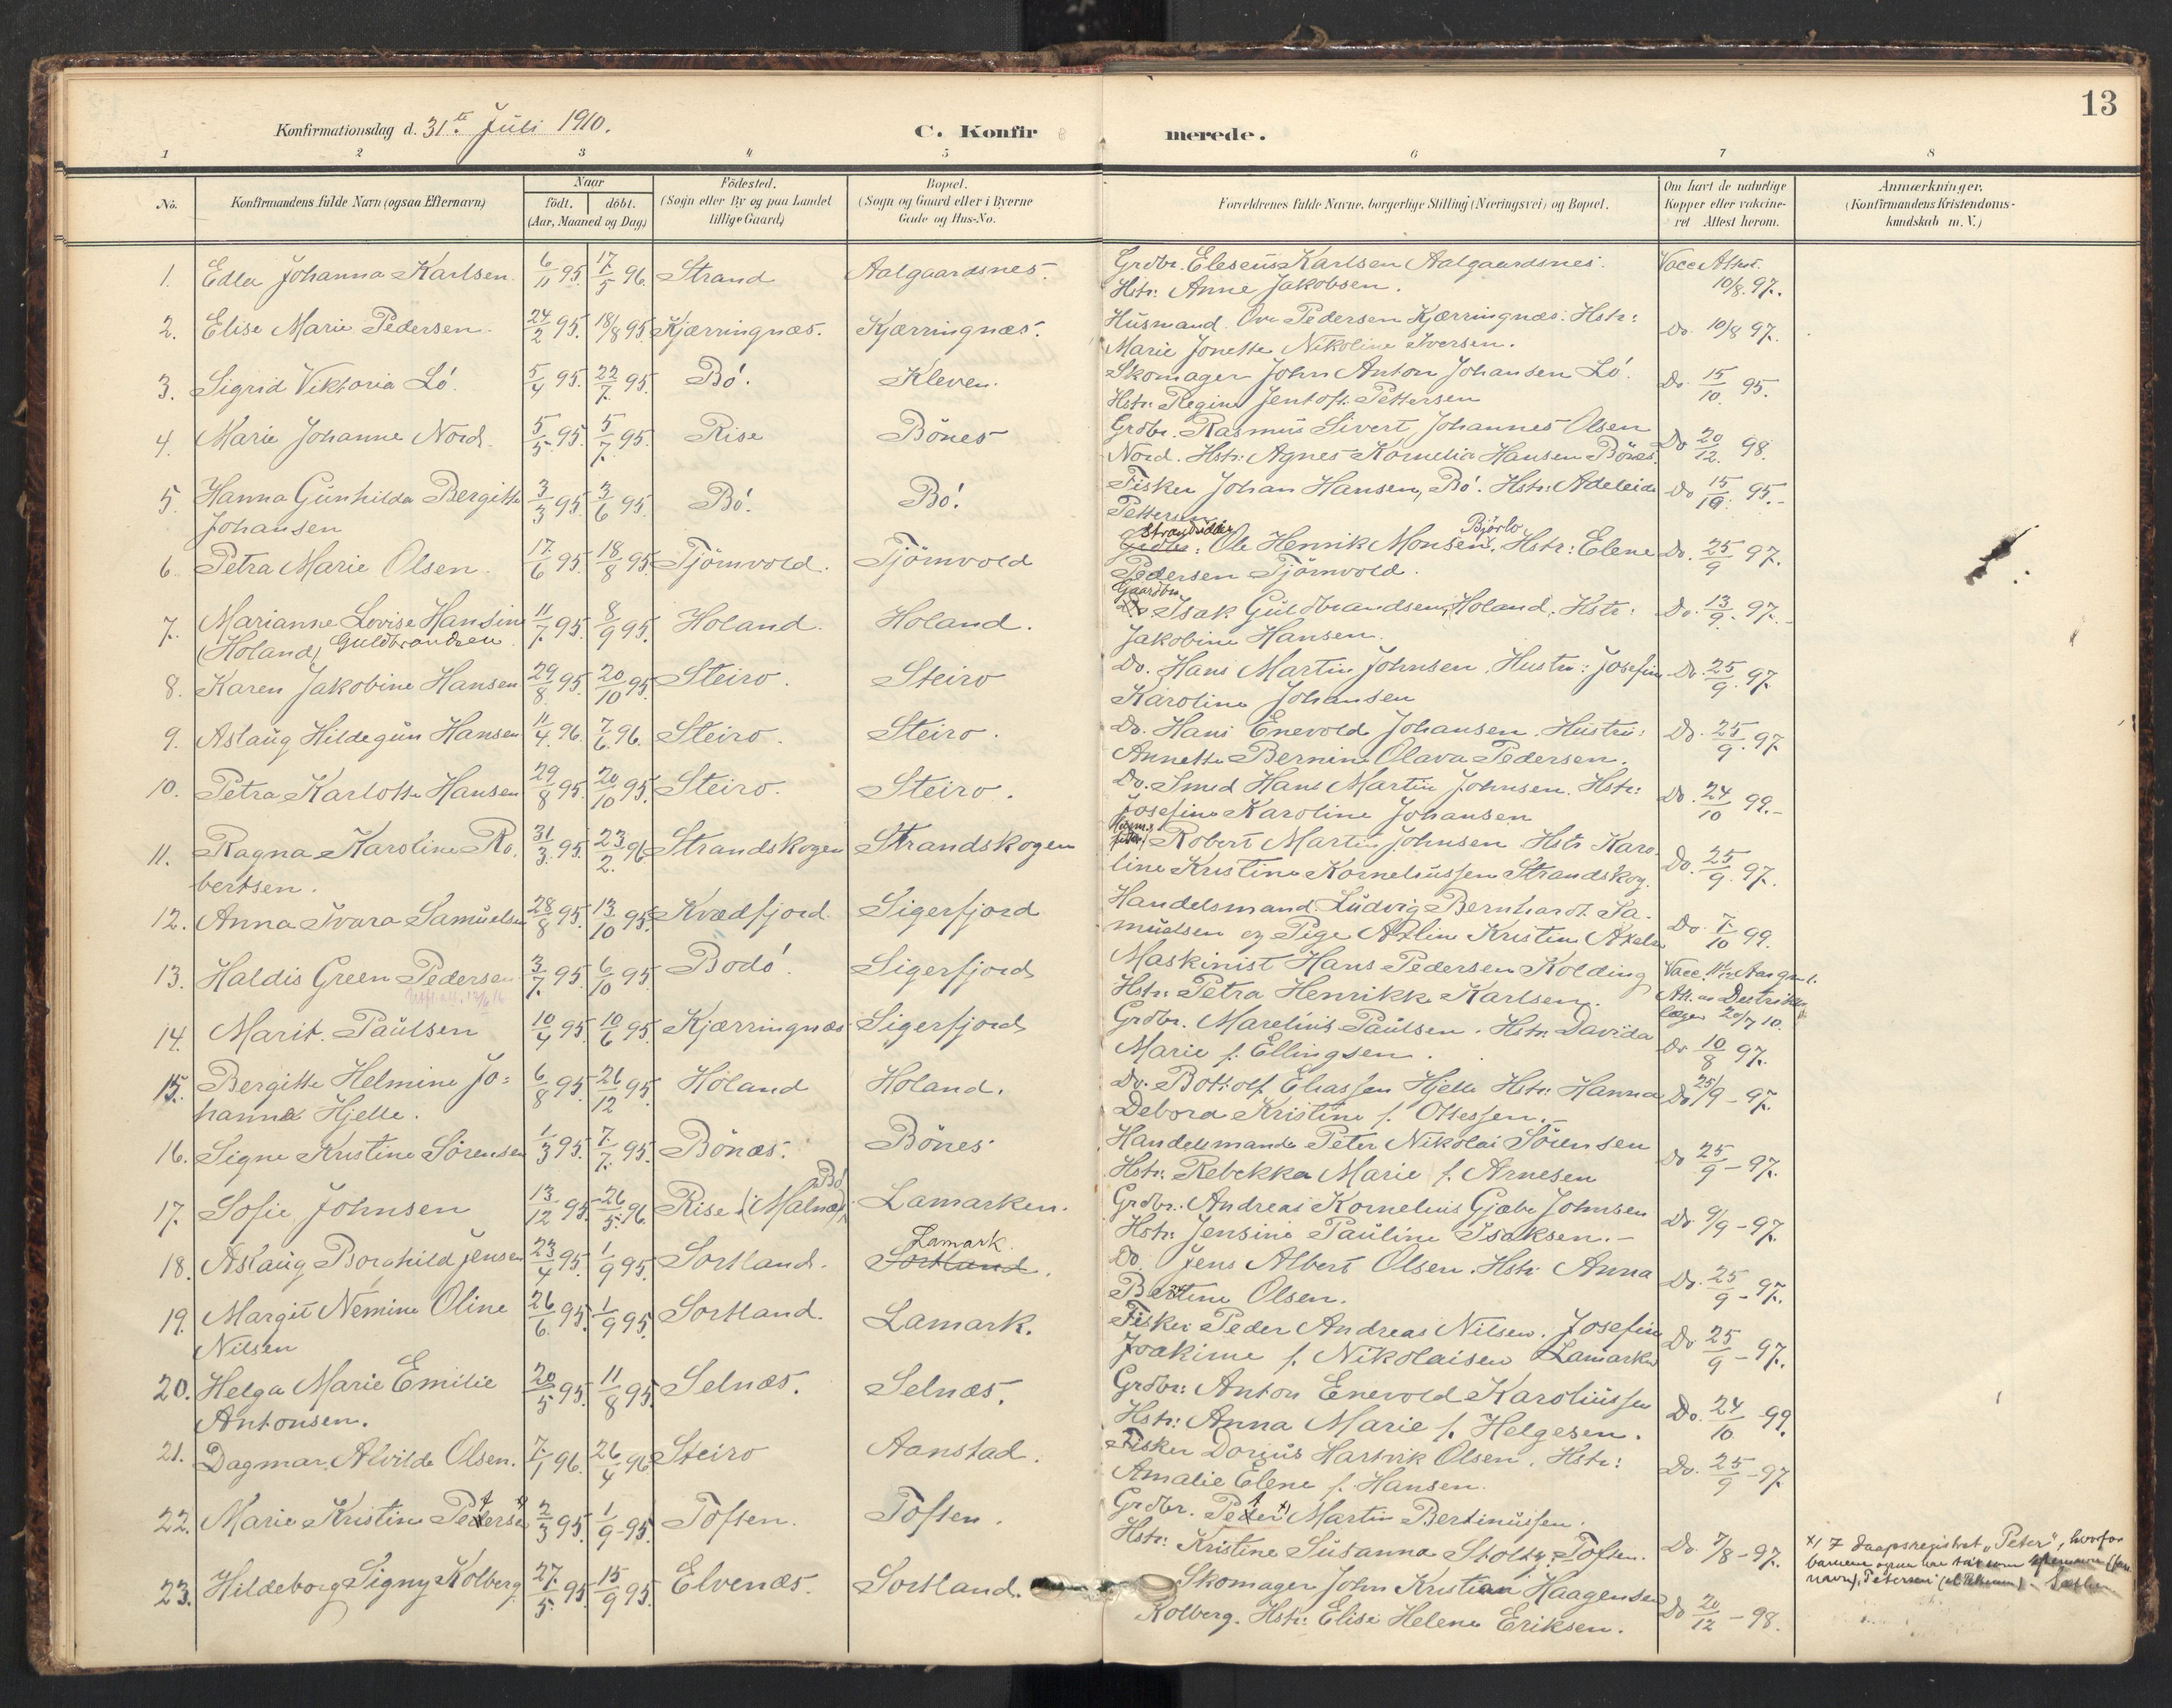 13
Konfirmationsdag d. 31te Juli 1910.
C. Konfirmerede.
1 2 3 4 5 6 7 8
No. Konfirmandens fulde Navn (ogsaa Efternavn) Naar födt. döbt. (Aar, Maaned og Dag) Födested. (Sogn eller By og paa Landet tillige Gaard) Bopæl. (Sogn og Gaard eller i Byerne Gade og Hus-No. Forældrenes fulde Navne, borgerlige Stilling (Næringsvei) og Bopæl. Om havt de naturlige Kopper eller vakcineret Attest herom. Anmærkninger. (Konfirmandens Kristendomskundskab m. V.)
1. Edla Johanna Karlsen. 6/11 95. 17/5 96. Strand Aalgaardsnes. Grdbr. Eleseus Karlsen Aalgaardsnes. Vacc Attest.
Hstr: Anne Jakobsen. 10/8. 97.
2. Elise Marie Pedersen. 24/2 95. 18/8 95 Kjærringnæs. Kjærringnæs. Husmand. Ove Pedersen Kjærringnæs. Hstr: Do. 10/8 97.
Marie Jonette Nikoline Iversen.
3. Sigrid Viktoria Lö. 5/4 95. 22/7 95. Bö. Kleven. Skomager John Anton Johansen Lö. Do. 15/10. 95.
Hstr: Regine Jentoft. Pettersen
4. Marie Johanne Nord. 5/5. 95. 5/7. 95. Rise Bönes Grdbr. Rasmus Sivert Johannes Olsen Do 20/12. 98.
Nord. Hstr: Agnes Kornelia Hansen Bönes.
5. Hanna Gunhilda Bergitte 3/3 95. 3/6 95. Bö. Bö. Fisker Johan Hansen, Bö. Hstr: Adeleide Do 15/10. 95.-
Johansen Pettersen
6. Petra Marie Olsen. 17/6 95. 18/8 95. Tjömvold. Tjömvold Strandsidder Grdbr: Ole Henrik Monsen Björlo. Hstr: Elene Do. 25/9 97.
Pedersen Tjömvold.
7. Marianne Lovise Hansine 11/7. 95. 8/9 95. Holand. Holand. Gaardbr. Do Isak Guldbrandsen, Holand. Hstr: Do. 13/9. 97.-
(Holand) Guldbrandsen Jakobine Hansen.
8. Karen Jakobine Hansen 29/8. 95. 20/10 95. Steiro. Steiro Do. Hans Martin Johnsen. Hustru: Josefine Do. 25/9. 97.
Karoline Johansen
9. Aslaug Hildegun Hansen 11/4. 96. 7/6. 96. Steiro. Steiro. Do. Hans Enevold Johansen. Hustru: Do. 25/9. 97
Annette Bernine Olava Pedersen.
10. Petra Karlotte Hansen 29/8 95. 20/10 95. Steiro. Steiro. Do. Smed Hans Martin Johnsen. Hstr: Do. 24/10 99.-
Josefine Karoline Johansen
11. Ragna Karoline Ro- 31/3. 95. 23/2. 96 Strandskogen Strandskogen Robert Martin Johnsen Hstr Karo- Do. 25/9. 97.
bertsen. line Kristine Korneliussen Strandskog.
12. Anna Ivara Samuelsen 28/8 95. 13/10 95. Kvædfjord. Sigerfjord Handelsmand Ludvig Bernhardt Sa- Do. 7/10 99.
muelsen og Pige Axline Kristine
13. Haldis Green Pedersen 3/7. 95. 6/10 95. Bodö. Sigerfjord Maskinist Hans Pedersen Kolding Vacc.
Hstr: Petra Henrikke Karlsen. Att. av Destrikts-
læger 20/7 10.
14. Marit. Paulsen 10/4 95. 10/6 95. Kjærringnæs Sigerfjord Grdbr. Marelius Paulsen. Hstr. Davida Do 10/8 97.
Marie f. Ellingsen.
15. Bergitte Helmine Jo- 6/8 95. 26/12 95. Holand Holand. Do. Bottolf Eliassen Hjelle Hstr: Hanna Do 25/9 - 97.
hanna Hjelle. Debora Kristine f. Ottessen.-
16. Signe Kristine Sörensen 1/3 95. 7/7. 95. Bönæs. Bönes Handelsmand Peter Nikolai Sörensen Do 25/9 - 97.
Hstr: Rebekka Marie f. Arnesen
17. Sofie Johnsen 13/12 95. 26/5. 96. Rise (i Malnæs) Bö Lamarken. Grdbr. Andreas Kornelius Gjæbe Johnsen Do. 9/9 - 97.
Hstr: Jensine Pauline Isaksen.-
18. Aslaug Borghild Jensen 23/4 95. 1/9 95. Sortland. Lamark. Sortland. Do. Jens Albert Olsen. Hstr Anna Do. 25/9 - 97.
Bertine Olsen.
19. Margit Nemine Oline 26/6. 95. 1/9 95. Sortland. Lamark. Fisker Peder Andreas Nilsen. Josefine Do 25/9 - 97.
Nilsen Joakime f. Nikolaisen Lamarken
20. Helga Marie Emilie 20/5 95. 11/8 95. Selnæs. Selnæs. Grdbr: Anton Enevold Karoliussen Do. 24/10 99.
Antonsen. Hstr: Anna Marie f. Helgesen.
21. Dagmar Alvilde Olsen. 7/1 96. 26/4 96 Steiro Aanstad. Fisker Dorius Hartvik Olsen. Hstr: Do. 25/9 - 97.
Amalie Elene f. Hansen.
22. Marie Kristine Petersen 2/3 95. 1/9 95. Toften. Toften. Grdbr. Peter x) Martin Bertinussen. Do. 7/8 - 97.
Hstr: Kristine Susanna Stoltz. Toften. x) I daapsregistret "Peter", hvorfor
23. Hildeborg Signy Kolberg. 27/5. 95. 15/9 95. Elvenæs. Sortland. Skomager John Kristian Haagensen Do 20/12 - 98.
Kolberg. Hstr: Elise Helene Eriksen.